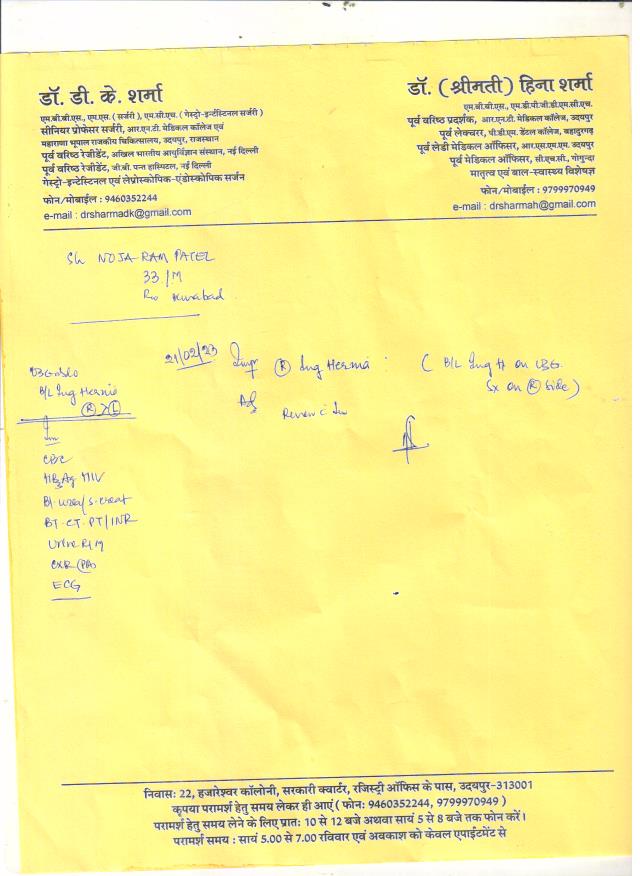 डॉ. डी. के. शर्मा
एम.बी.बी.एस., एम.एस. ( सर्जरी ), एम.सी.एच. ( गेस्ट्रो-इन्टेस्टिनल सर्जरी )
सीनियर प्रोफेसर सर्जरी, आर.एन.टी. मेडिकल कॉलेज एवं
महाराणा भूपाल राजकीय चिकित्सालय, उदयपुर, राजस्थान
पूर्व वरिष्ठ रेजीडेंट, अखिल भारतीय आयुर्विज्ञान संस्थान, नई दिल्ली
पूर्व वरिष्ठ रेजीडेंट, जी.बी. पन्त हास्पिटल, नई दिल्ली
गेस्ट्रो-इन्टेस्टिनल एवं लेप्रोस्कोपिक-एंडोस्कोपिक सर्जन
फोन/मोबाईल : 9460352244
e-mail : drsharmadk@gmail.com
डॉ. ( श्रीमती ) हिना शर्मा
एम.बी.बी.एस., एम.डी.पी.जी.डी.एम.सी.एच.
पूर्व वरिष्ठ प्रदर्शक, आर.एन.टी. मेडिकल कॉलेज, उदयपुर
पूर्व लेक्चरर, पी.डी.एम. डेंटल कॉलेज, बहादुरगढ़
पूर्व लेडी मेडिकल ऑफिसर, आर.एस.एम.एम. उदयपुर
पूर्व मेडिकल ऑफिसर, सी.एच.सी., गोगुन्दा
मातृत्व एवं बाल-स्वास्थ्य विशेषज्ञ
फोन/मोबाईल : 9799970949
e-mail : drsharmah@gmail.com
Sh NOJA RAM PATEL
33/M
R/o Kurabad
21/02/23 Imp (R) Ing Hernia : ( B/L Ing H on USG.
Sx on (R) side )
Adv
Review c
USG
B/L Ing Hernia
(R) > (L)
Inv
CBC
HBsAg HIV
Bl. urea/s. creat
BT-CT-PT/INR
Urine R/M
CXR (PA)
ECG
निवास: 22, हजारेश्वर कॉलोनी, सरकारी क्वार्टर, रजिस्ट्री ऑफिस के पास, उदयपुर-313001
कृपया परामर्श हेतु समय लेकर ही आएं ( फोन: 9460352244, 9799970949 )
परामर्श हेतु समय लेने के लिए प्रातः 10 से 12 बजे अथवा सायं 5 से 8 बजे तक फोन करें।
परामर्श समय : सायं 5.00 से 7.00 रविवार एवं अवकाश को केवल एपाईंटमेंट से